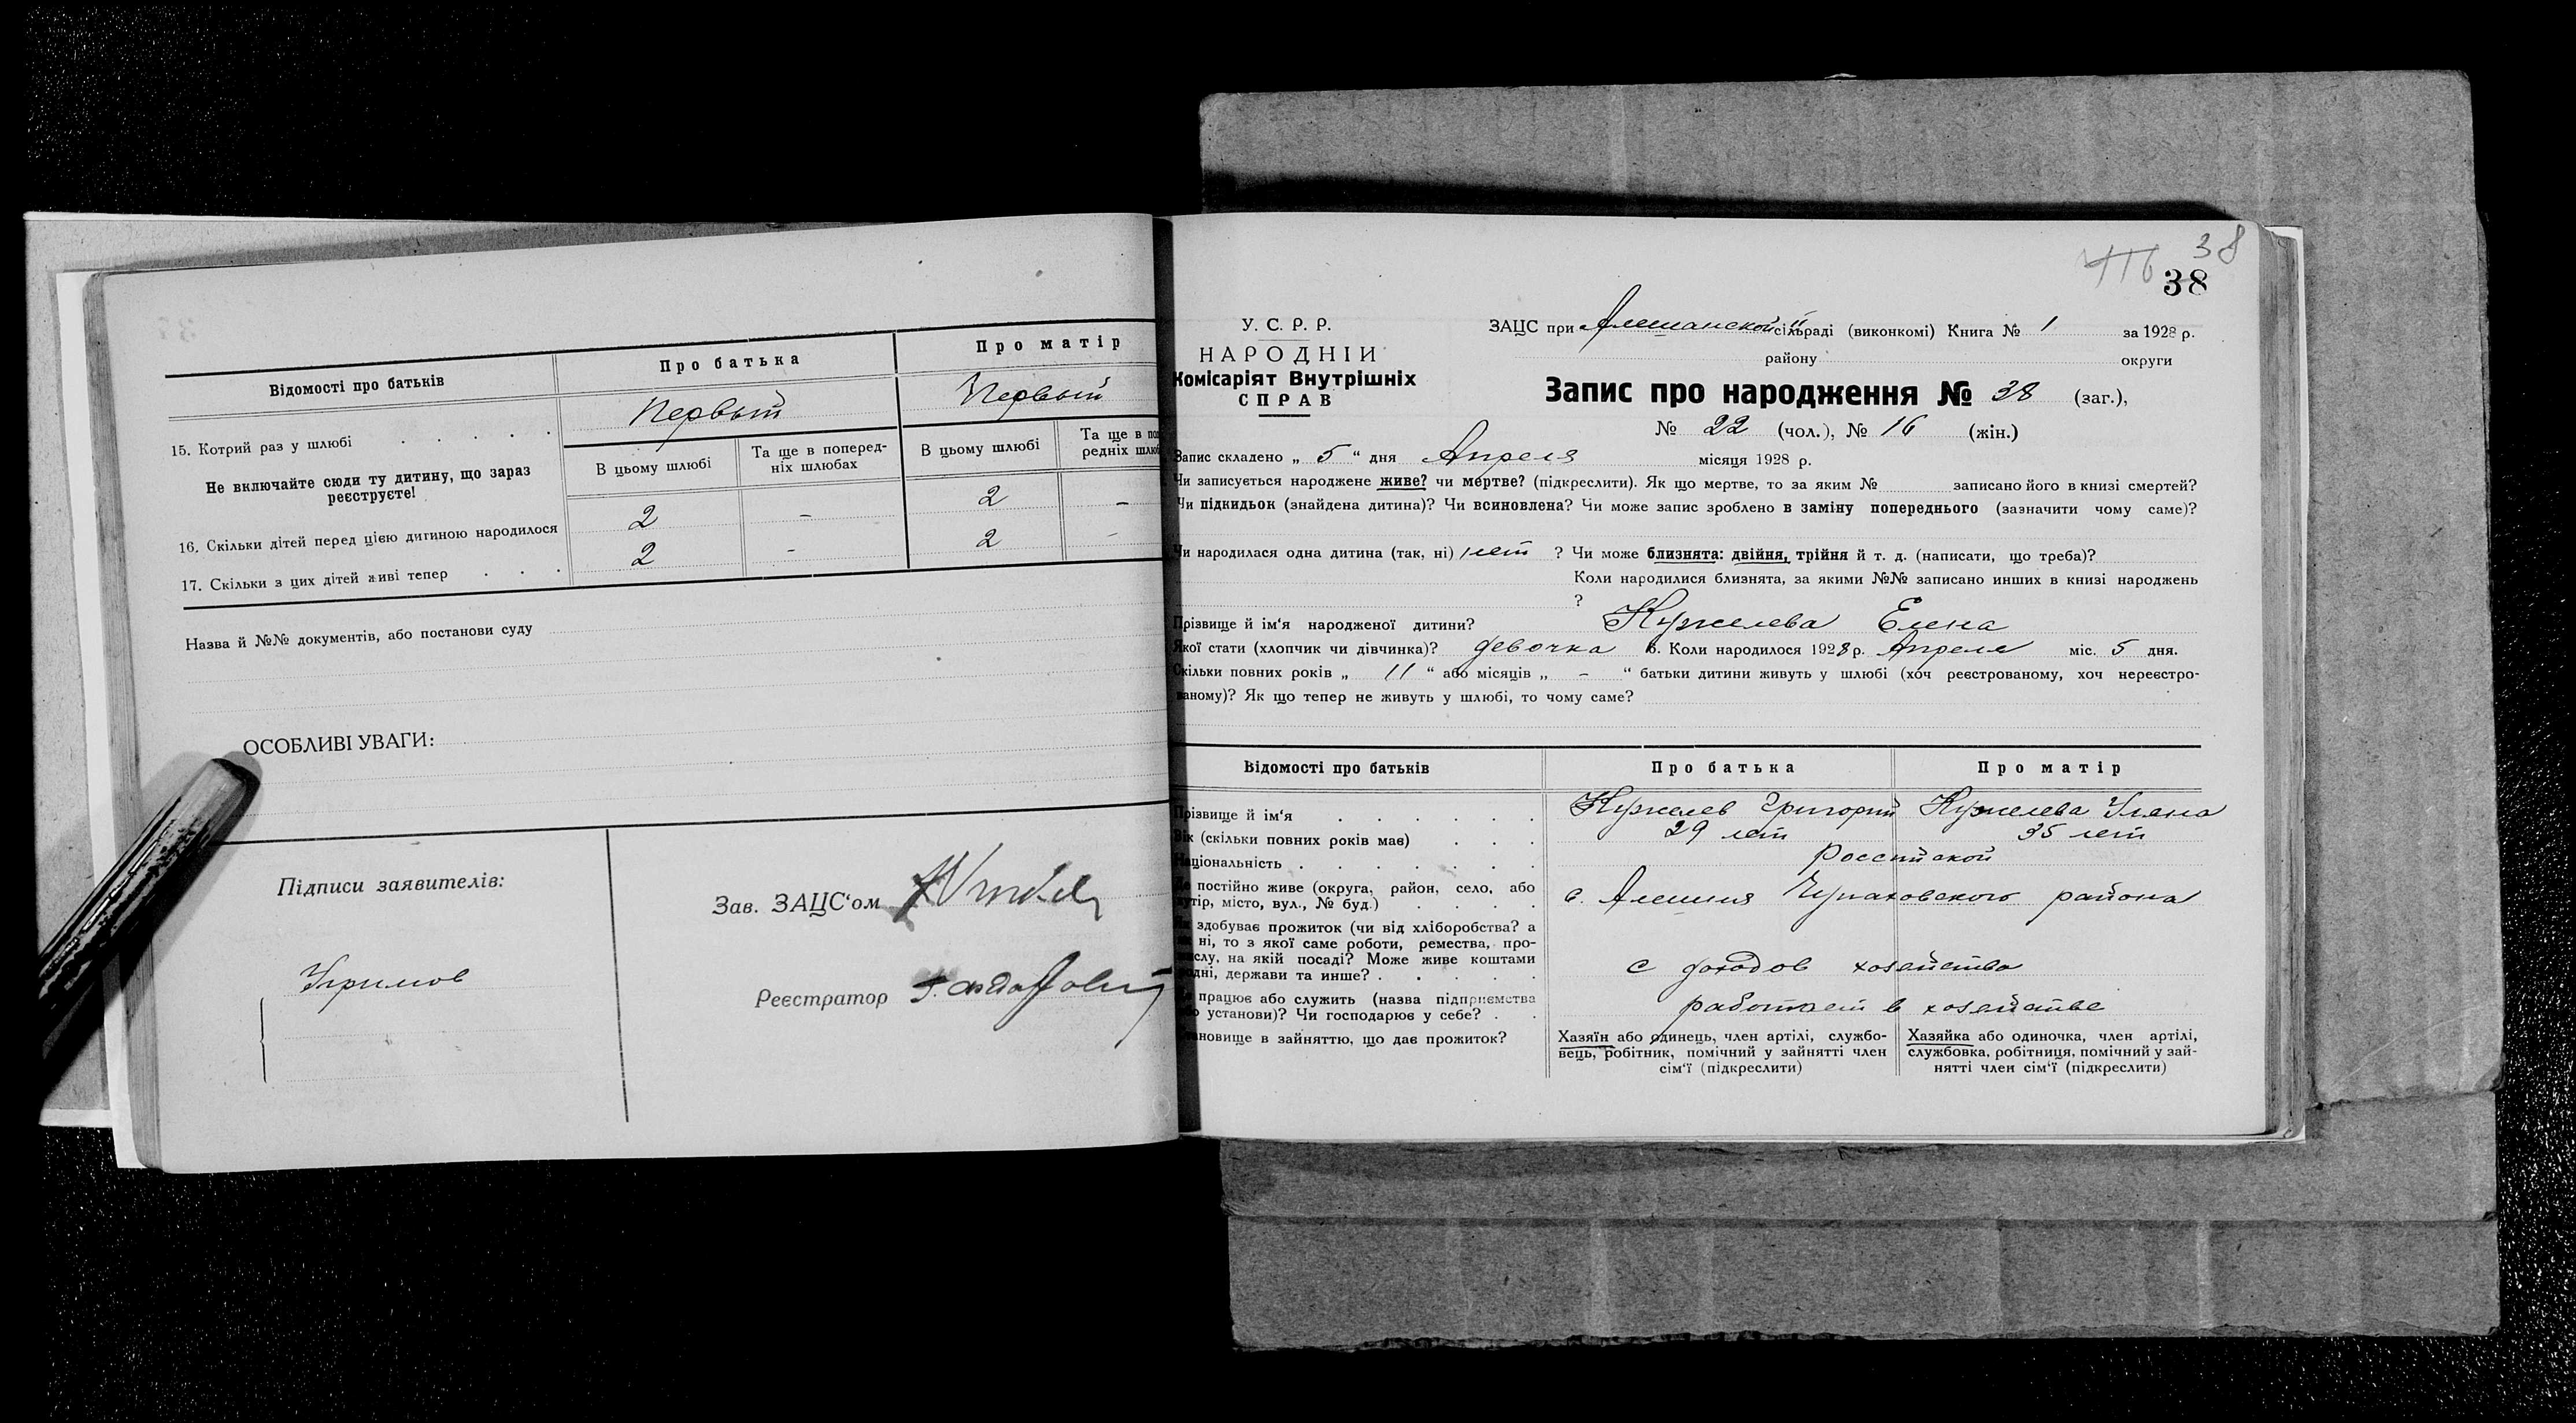 Відомості про батьків
Про батька
Про матір
15. Котрий раз у шлюбі . . . . .
Первый
Первый
Не включайте сюди ту дитину, що зараз
реєструєте!
В цьому шлюбі
Та ще в поперед-
ніх шлюбах
В цьому шлюбі
Та ще в по
редніх шлю
16. Скільки дітей перед цією дитиною народилося
2
-
2
-
17. Скільки з цих дітей живі тепер . . .
2
-
2
-
Назва й №№ документів, або постанови суду
ОСОБЛИВІ УВАГИ:
Підписи заявителів:
Зав. ЗАЦС‘ом
Реєстратор
38
38
У. С. Р. Р.
НАРОДНІЙ
Комісаріят Внутрішніх
СПРАВ
ЗАЦС при Алешанской сільраді (виконкомі) Книга № 1 за 1928 р.
району округи
Запис про народження № 38 (заг.),
№ 22 (чол.), № 16 (жін.)
Запис складено „ 5 “ дня Апреля місяця 1928 р.
Чи записується народжене живе? чи мертве? (підкреслити). Як що мертве, то за яким № записано його в книзі смертей?
Чи підкидьок (знайдена дитина)? Чи всиновлена? Чи може запис зроблено в заміну попереднього (зазначити чому саме)?
Чи народилася одна дитина (так, ні) ? Чи може близнята: двійня, трійня й т. д. (написати, що треба)?
Коли народилися близнята, за якими №№ записано инших в книзі народжень
?
Прізвище й ім‘я народженої дитини? Кужелева Елена
Якої стати (хлопчик чи дівчинка)? девочка 6. Коли народилося 1928 р. Апреля міс. 5 дня.
Скільки повних років „ 11 “ або місяців „ - “ батьки дитини живуть у шлюбі (хоч реєстрованому, хоч нереєстро-
ваному)? Як що тепер не живуть у шлюбі, то чому саме?
Відомості про батьків
Про батька
Про матір
Прізвище й ім‘я . . . . . .
Кужелев Григорий
Кужелева Уляна
Вік (скільки повних років має) . . .
29 лет
35 лет
Національність . . . . . . .
Российской
Де постійно живе (округа, район, село, або
хутір, місто, вул., № буд.) . . . .
с. Алешня Чупаховского района
здобуває прожиток (чи від хліборобства? а
ні, то з якої саме роботи, ремества, про-
слу, на якій посаді? Може живе коштами
родні, держави та инше? . . . . .
с доходов хозяйства
працює або служить (назва підприємства
або установи)? Чи господарює у себе? . .
работает в хозяйстве
Становище в зайняттю, що дає прожиток?
Хазяїн або одинець, член артілі, службо-
вець, робітник, помічний у зайнятті член
сім‘ї (підкреслити)
Хазяйка або одиночка, член артілі,
службовка, робітниця, помічний у зай-
нятті член сім‘ї (підкреслити)